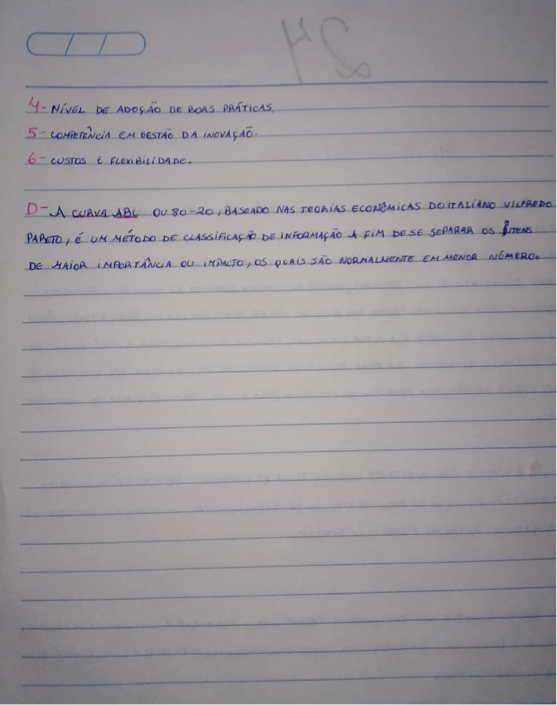 24
4- NÍVEL DE ADOÇÃO DE BOAS PRÁTICAS.
5- COMPETÊNCIA EM GESTÃO DA INOVAÇÃO.
6- CUSTOS E FLEXIBILIDADE.
D- A CURVA ABC OU 80-20, BASEADO NAS TEORIAS ECONÔMICAS DO ITALIANO VILFREDO
PARETO, É UM MÉTODO DE CLASSIFICAÇÃO DE INFORMAÇÃO A FIM DE SE SEPARAR OS ÍTENS
DE MAIOR IMPORTÂNCIA OU IMPACTO, OS QUAIS SÃO NORMALMENTE EM MENOR NÚMERO.